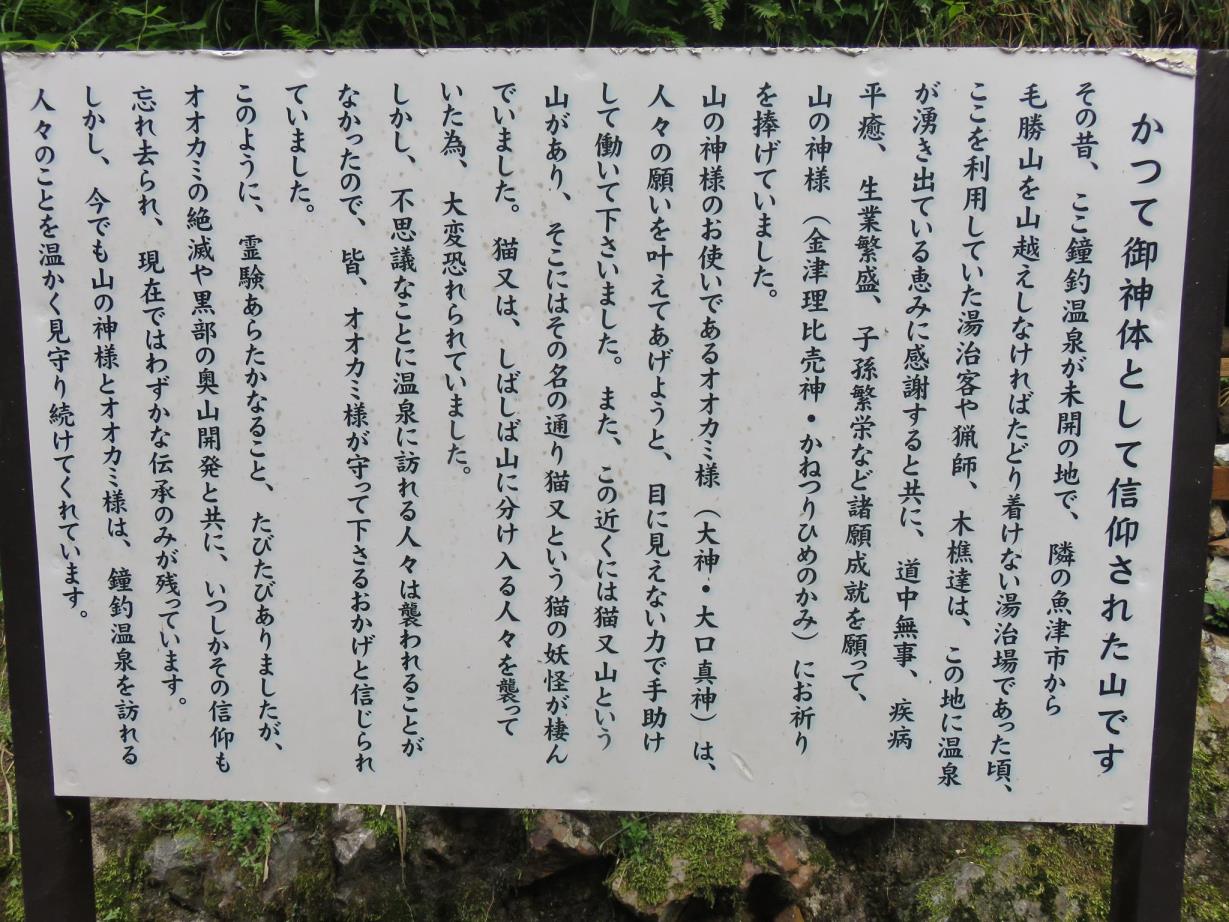 かつて御神体として信仰された山です
その昔、ここ鐘釣温泉が未開の地で、隣の魚津市から
毛勝山を山越えしなければたどり着けない湯治場であった頃、
ここを利用していた湯治客や猟師、木樵達は、この地に温泉
が湧き出ている恵みに感謝すると共に、道中無事、疾病
平癒、生業繁盛、子孫繁栄など諸願成就を願って、
山の神様（金津理比売神・かねつりひめのかみ）にお祈り
を捧げていました。
山の神様のお使いであるオオカミ様（大神・大口真神）は、
人々の願いを叶えてあげようと、目に見えない力で手助け
して働いて下さいました。また、この近くには猫又山という
山があり、そこにはその名の通り猫又という猫の妖怪が棲ん
でいました。猫又は、しばしば山に分け入る人々を襲って
いた為、大変恐れられていました。
しかし、不思議なことに温泉に訪れる人々は襲われることが
なかったので、皆、オオカミ様が守って下さるおかげと信じられ
ていました。
このように、霊験あらたかなること、たびたびありましたが、
オオカミの絶滅や黒部の奥山開発と共に、いつしかその信仰も
忘れ去られ、現在ではわずかな伝承のみが残っています。
しかし、今でも山の神様とオオカミ様は、鐘釣温泉を訪れる
人々のことを温かく見守り続けてくれています。